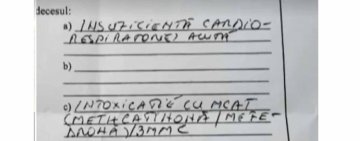 decesul:
a) INSUFICIENTĂ CARDIO-
RESPIRATORIE ACUTĂ
b)
c) INTOXICAȚIE CU MCAT
(METHCATINONĂ / MEFE-
DRONĂ) / 3MMC